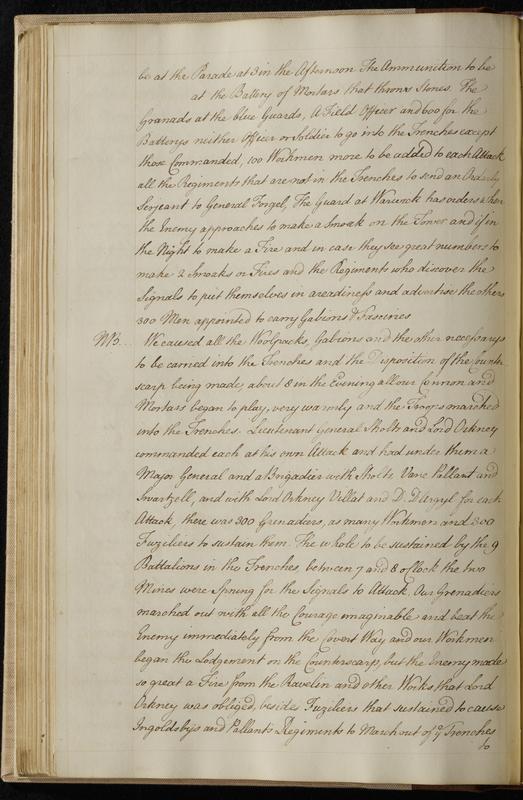 be at the Parade at 3 in the Afternoon The Ammunition to be
at the Battery of Mortars that throw Stones. The
Granads at the blue Guards, A Field Officer and 600 for the
Batterys neither Officer or Soldier to go into the Trenches except
those Commanded, 100 Workmen more to be added to each Attack
all the Regiments that are not in the Trenches to send an Orderly
Serjeant to General Fergel, The Guard at Warwick has orders when
the Enemy approaches to make a Smoak on the Tower and if in
the Night to make a Fire and in case they see great numbers to
make 2 Smoaks or Fires and the Regiments who discover the
Signals to put themselves in areadiness and advertise the others
300 Men appointed to carry Gabions & Fascines
NB... We caused all the Woolpacks, Gabions and the other necessarys
to be carried into the Trenches and the Disposition of the Counter
scarp being made, about 8 in the Evening all our Cannon and
Mortars began to play, very warmly and the Troops marched
into the Trenches. Lieutenant General Sholts and Lord Orkney
commanded each at his own Attack and had under them a
Major General and a Brigadier with Sholts Vane Pallant and
Swartzell, and with Lord Orkney Villat and D: D'Argyl for each
Attack, there was 300 Grenadiers, as many Workmen and 300
Fuziliers to sustain them. The whole to be sustained by the 9
Battalions in the Trenches, between 7 and 8 oClock the two
Mines were Sprung for the Signals to Attack, Our Grenadiers
marched out with all the Courage imaginable and beat the
Enemy immediately from the Covert Way and our Workmen
began the Lodgement on the Counterscarp, but the Enemy made
so great a Fire from the Ravelin and other Works that Lord
Orkney was obliged, besides Fuziliers that sustained to cause
Ingoldsbys and Pallants Regiments to March out of ye Trenches
to